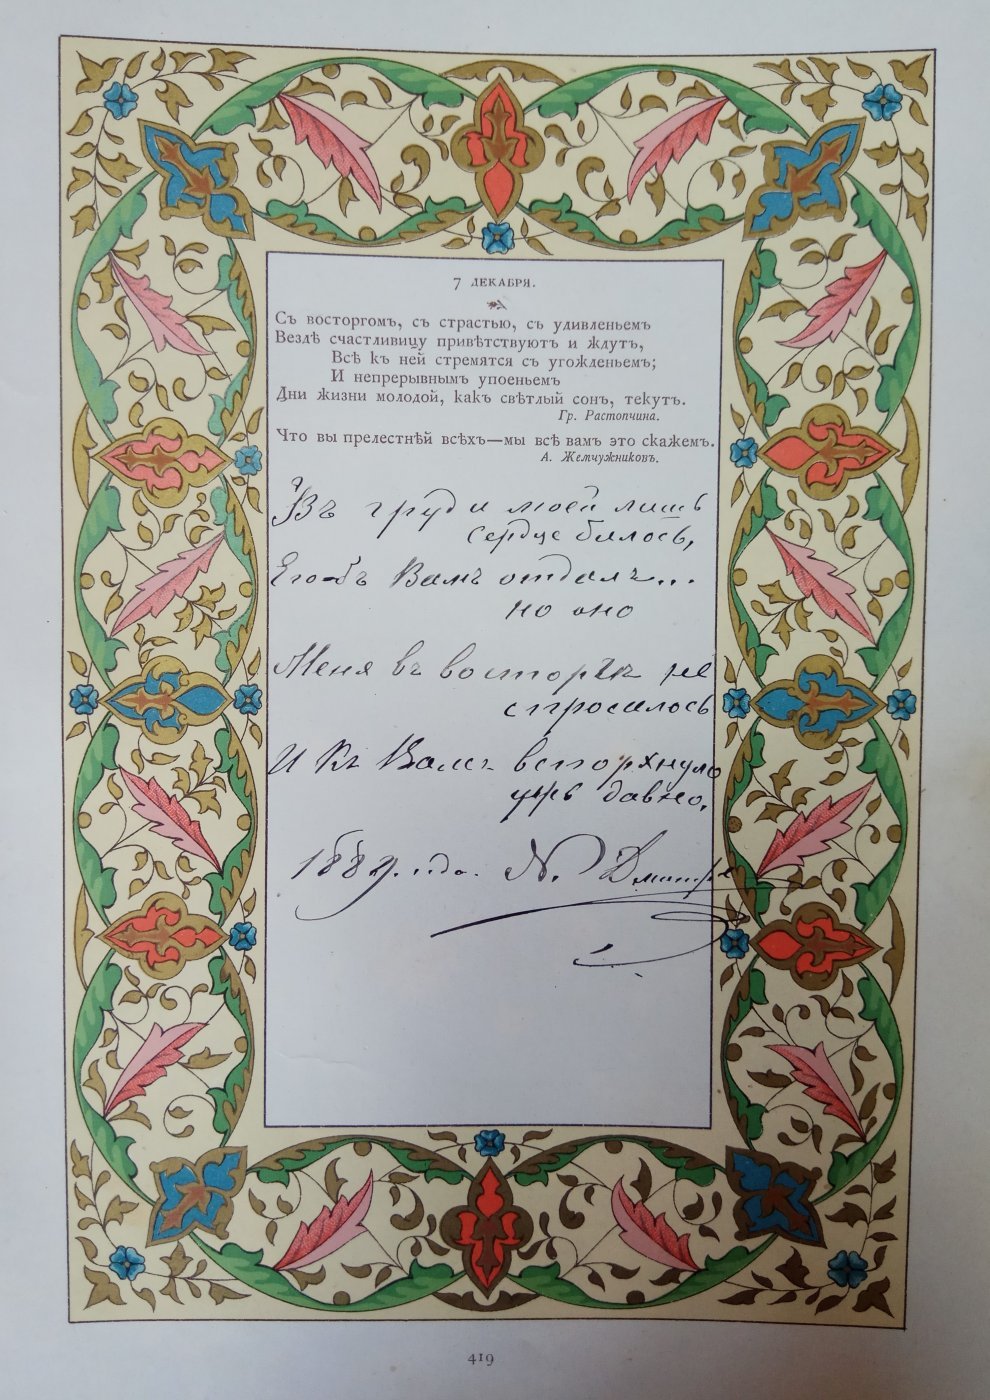 7 ДЕКАБРЯ.
Съ восторгомъ, съ страстью, съ удивленьемъ
Вездѣ счастливицу привѣтствуютъ и ждутъ,
Всѣ къ ней стремятся съ угожденьемъ;
И непрерывнымъ упоеньемъ
Дни жизни молодой, какъ свѣтлый сонъ, текутъ.
Гр. Растопчина.
Что вы прелестнѣй всѣхъ—мы всѣ вамъ это скажемъ.
А. Жемчужниковъ.
Въ груди моей лишь
сердце билось,
Его-бъ Вамъ отдалъ...
но оно
Меня въ восторгѣ не
спросилось
И къ Вамъ вспорхнуло
ужъ давно.
1889. года.
419